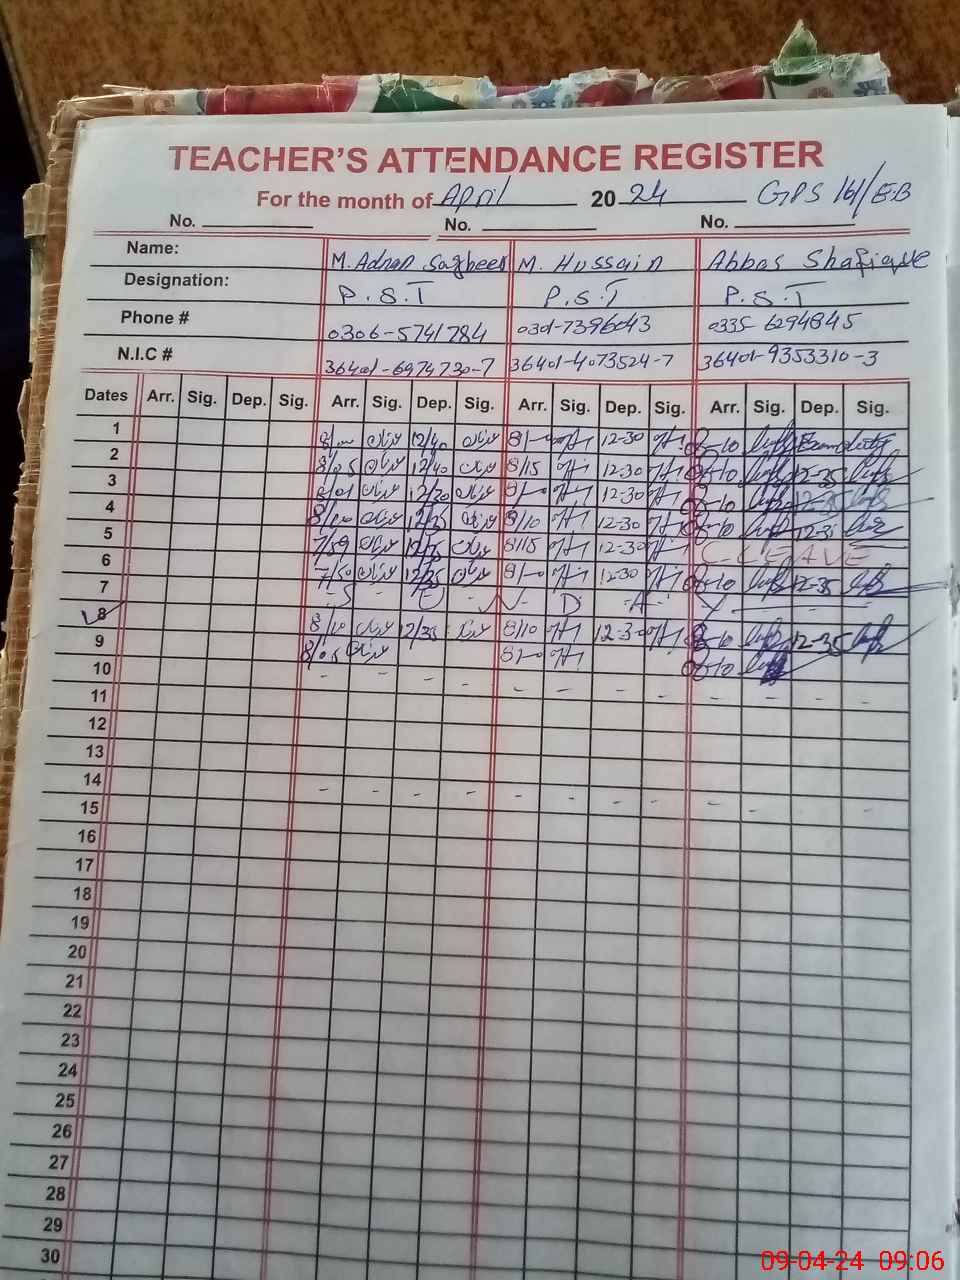 TEACHER'S ATTENDANCE REGISTER
For the month of April 2024 GPS 161/EB
No. No. No.
Name: M. Adnan Sagheer M. Hussain Abbas Shafique
Designation: P.S.T P.S.T P.S.T
Phone # 0306-5741784 0301-7396043 0335-6294845
N.I.C # 36401-6974730-7 36401-4073524-7 36401-9353310-3
Dates Arr. Sig. Dep. Sig. Arr. Sig. Dep. Sig. Arr. Sig. Dep. Sig. Arr. Sig. Dep. Sig.
1 8/00 عدنان 12/40 عدنان 8/-0 12-30 08-10
2 8/05 عدنان 12/40 عدنان 8/15 12-30 08-10 12-35
3 8/01 عدنان 12/30 عدنان 8/-0 12-30 08-10 12-35
4 8/00 عدنان عدنان 8/10 12-30 08-10 12-35
5 7/59 عدنان عدنان 8/15 12-30 C-LEAVE
6 7/50 عدنان 12/35 عدنان 8/-0 12-30 08-10 12-35
7 S U N D A Y
8 8/10 عدنان 12/35 عدنان 8/10 12-30 08-10 12-35
9 8/05 عدنان 8/-0 08-10
10 - - - - - - - - - - - -
11
12
13
14 - - - - - - - - - - -
15
16
17
18
19
20
21
22
23
24
25
26
27
28
29
30
09-04-24 09:06